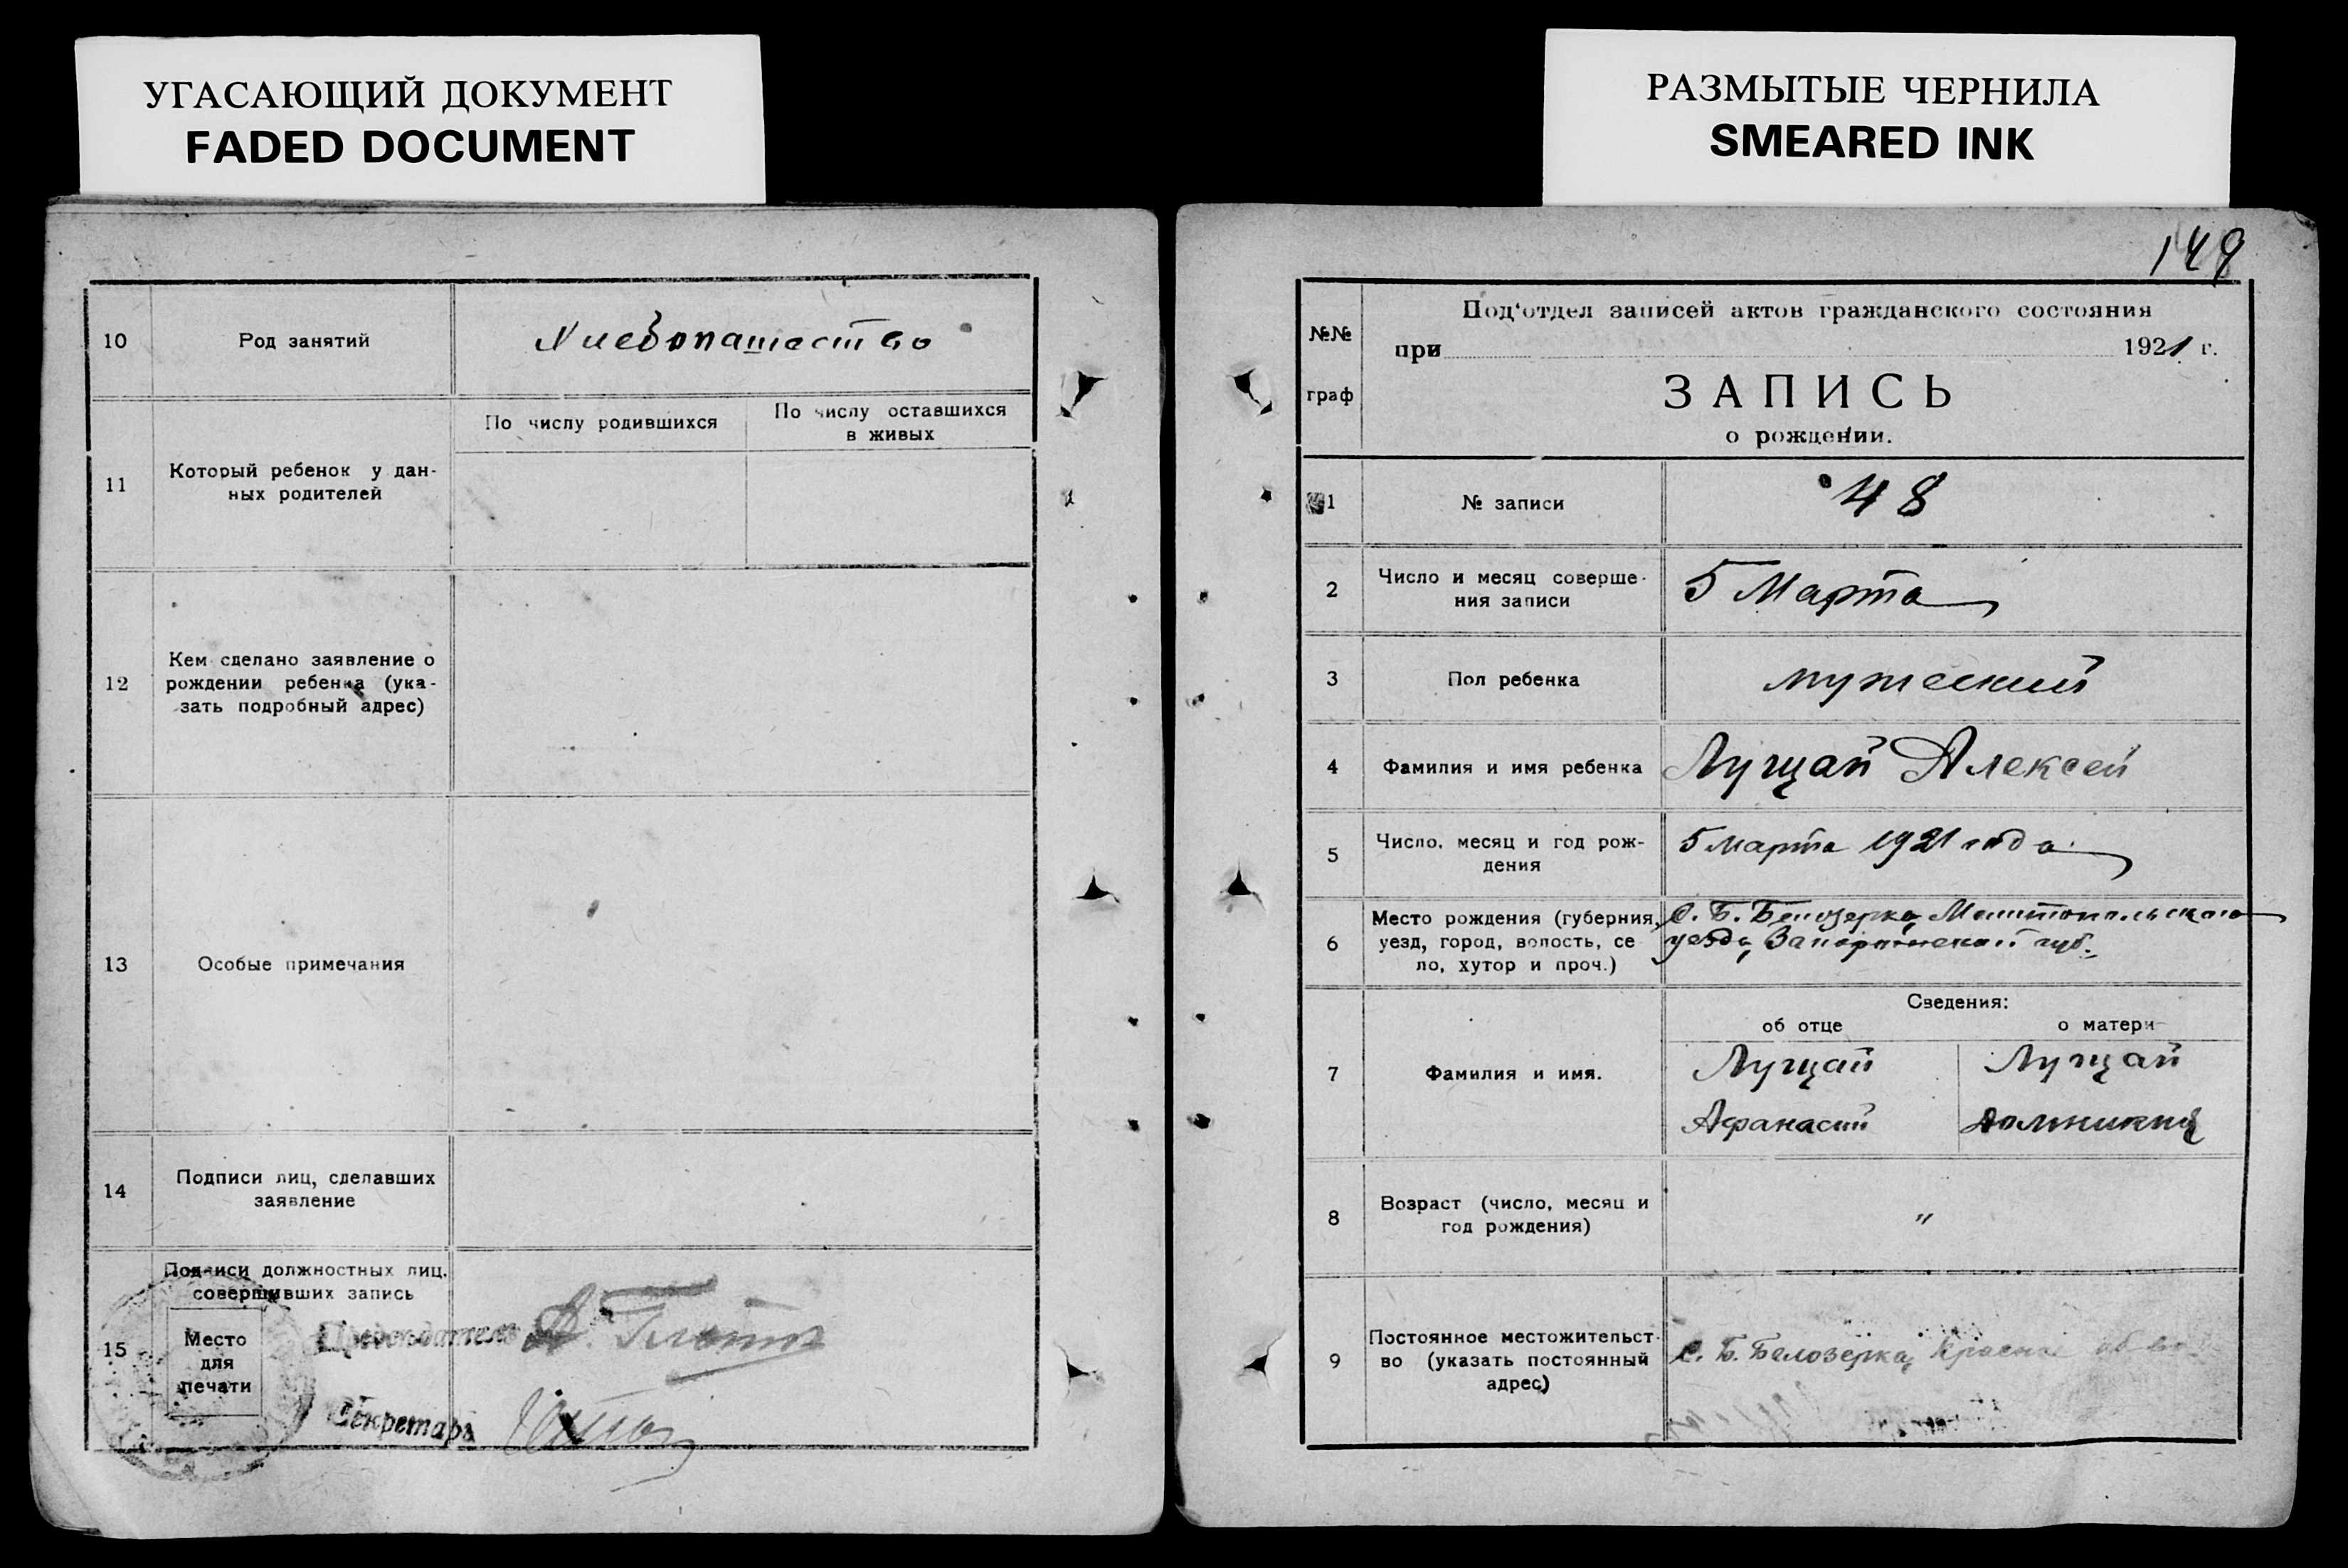 УГАСАЮЩИЙ ДОКУМЕНТ
FADED DOCUMENT
10
Род занятий
Хлебопашество
11
Который ребенок у дан-
ных родителей
По числу родившихся
По числу оставшихся
в живых
12
Кем сделано заявление о
рождении ребенка (ука-
зать подробный адрес)
13
Особые примечания
14
Подписи лиц, сделавших
заявление
15
Подписи должностных лиц.
совершивших запись
Место
для
печати
Председатель
Секретарь
РАЗМЫТЫЕ ЧЕРНИЛА
SMEARED INK
149
№№
граф
Под'отдел записей актов гражданского состояния
при 1921 г.
ЗАПИСЬ
о рождении.
1
№ записи
48
2
Число и месяц соверше-
ния записи
5 Марта
3
Пол ребенка
мужеский
4
Фамилия и имя ребенка
Лущай Алексей
5
Число, месяц и год рож-
дения
5 марта 1921 года.
6
Место рождения (губерния,
уезд, город, волость, се
ло, хутор и проч.)
С. Б. Белозерка, Мелитопольского
уезда, Запорожской губ.
Сведения:
об отце
о матери
7
Фамилия и имя.
Лущай
Афанасий
Лущай
8
Возраст (число, месяц и
год рождения)
"
9
Постоянное местожительст-
во (указать постоянный
адрес)
С. Б. Белозерка,